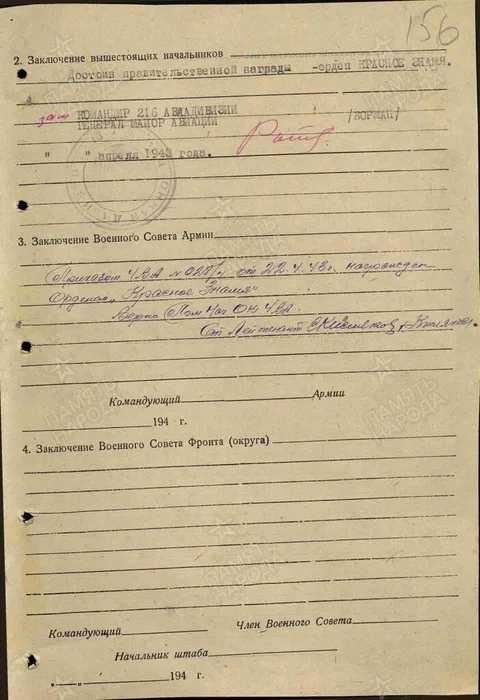 156
2. Заключение вышестоящих начальников
Достоин правительственной награды -орден КРАСНОЕ ЗНАМЯ.
зам КОМАНДИР 216 АВИАДИВИЗИИ
ГЕНЕРАЛ МАЙОР АВИАЦИИ /БОРМАН/
" " апреля 1943 года.
3. Заключение Военного Совета Армии
Приказом 4ВА № 028/н от 22.4.43г. награжден
Орденом "Красное Знамя"
Верно Пом Нач ОК 4ВА
Ст Лейтенант
Командующий Армии
194 г.
4. Заключение Военного Совета Фронта (округа)
Командующий Член Военного Совета
Начальник штаба
" " 194 г.
ПАМЯТЬ НАРОДА